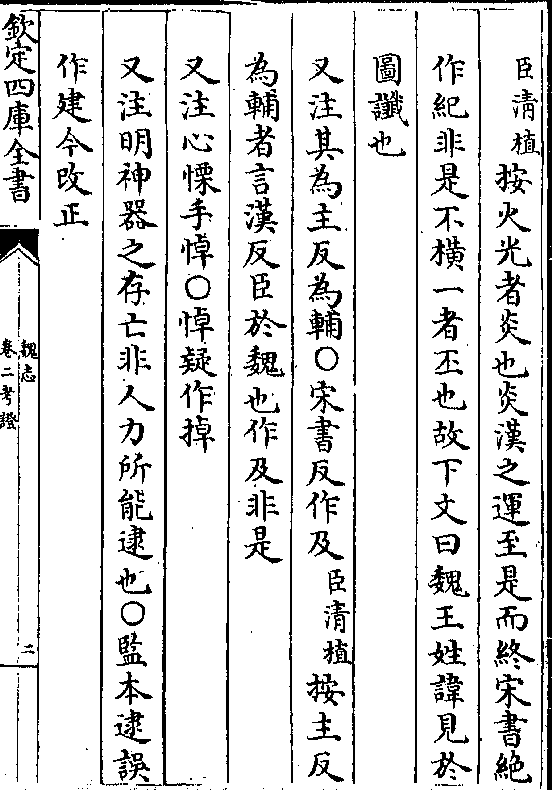 臣清植按火光者炎也炎漢之運至是而終宋書絶
作紀非是不横一者丕也故下文曰魏王姓諱見於
圖讖也
又注其為主反為輔○宋書反作及臣清植按主反
為輔者言漢反臣於魏也作及非是
又注心慄手悼○悼疑作掉
又注明神器之存亡非人力所能逮也○監本逮誤
作建今改正
欽定四庫全書
魏志
卷二考證
二